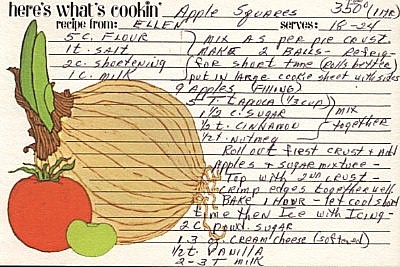 here's what's cookin' Apple Squares 350° (1 HR)
recipe from: ELLEN serves: 18-24
5 C. FLOUR } MIX AS PER PIE CRUST.
1 t. SALT MAKE 2 BALLS - Refrig-
2 C. shortening for short time (Rolls better)
1 C. milk put in large cookie sheet with sides
9 Apples (FILLING)
5 T. TAPIOCA (1/3 cup)
1 1/2 C. SUGAR } MIX
1/2 t. CINNAMON together
1/2 t. Nutmeg
Roll out first crust & Add
Apples & SUGAR mixture -
Top with 2nd CRUST -
crimp edges together well.
BAKE 1 HOUR - let cool short
time then Ice with Icing -
2 C. powd. SUGAR
1-3 oz. CREAM cheese (softened)
1/2 t. VANILLA
2-3 T milk